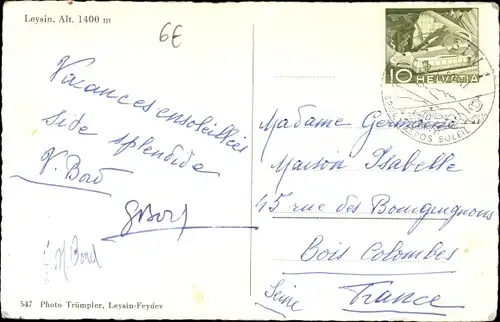 Leysin, Alt. 1400 m
6€
Vacances ensoleillées
Site splendide
10 HELVETIA
REPOS SOLEIL
Madame Germaine
Maison Isabelle
45 rue des Bourguignons
Bois Colombes
Seine France
547 Photo Trümpler, Leysin-Feydey